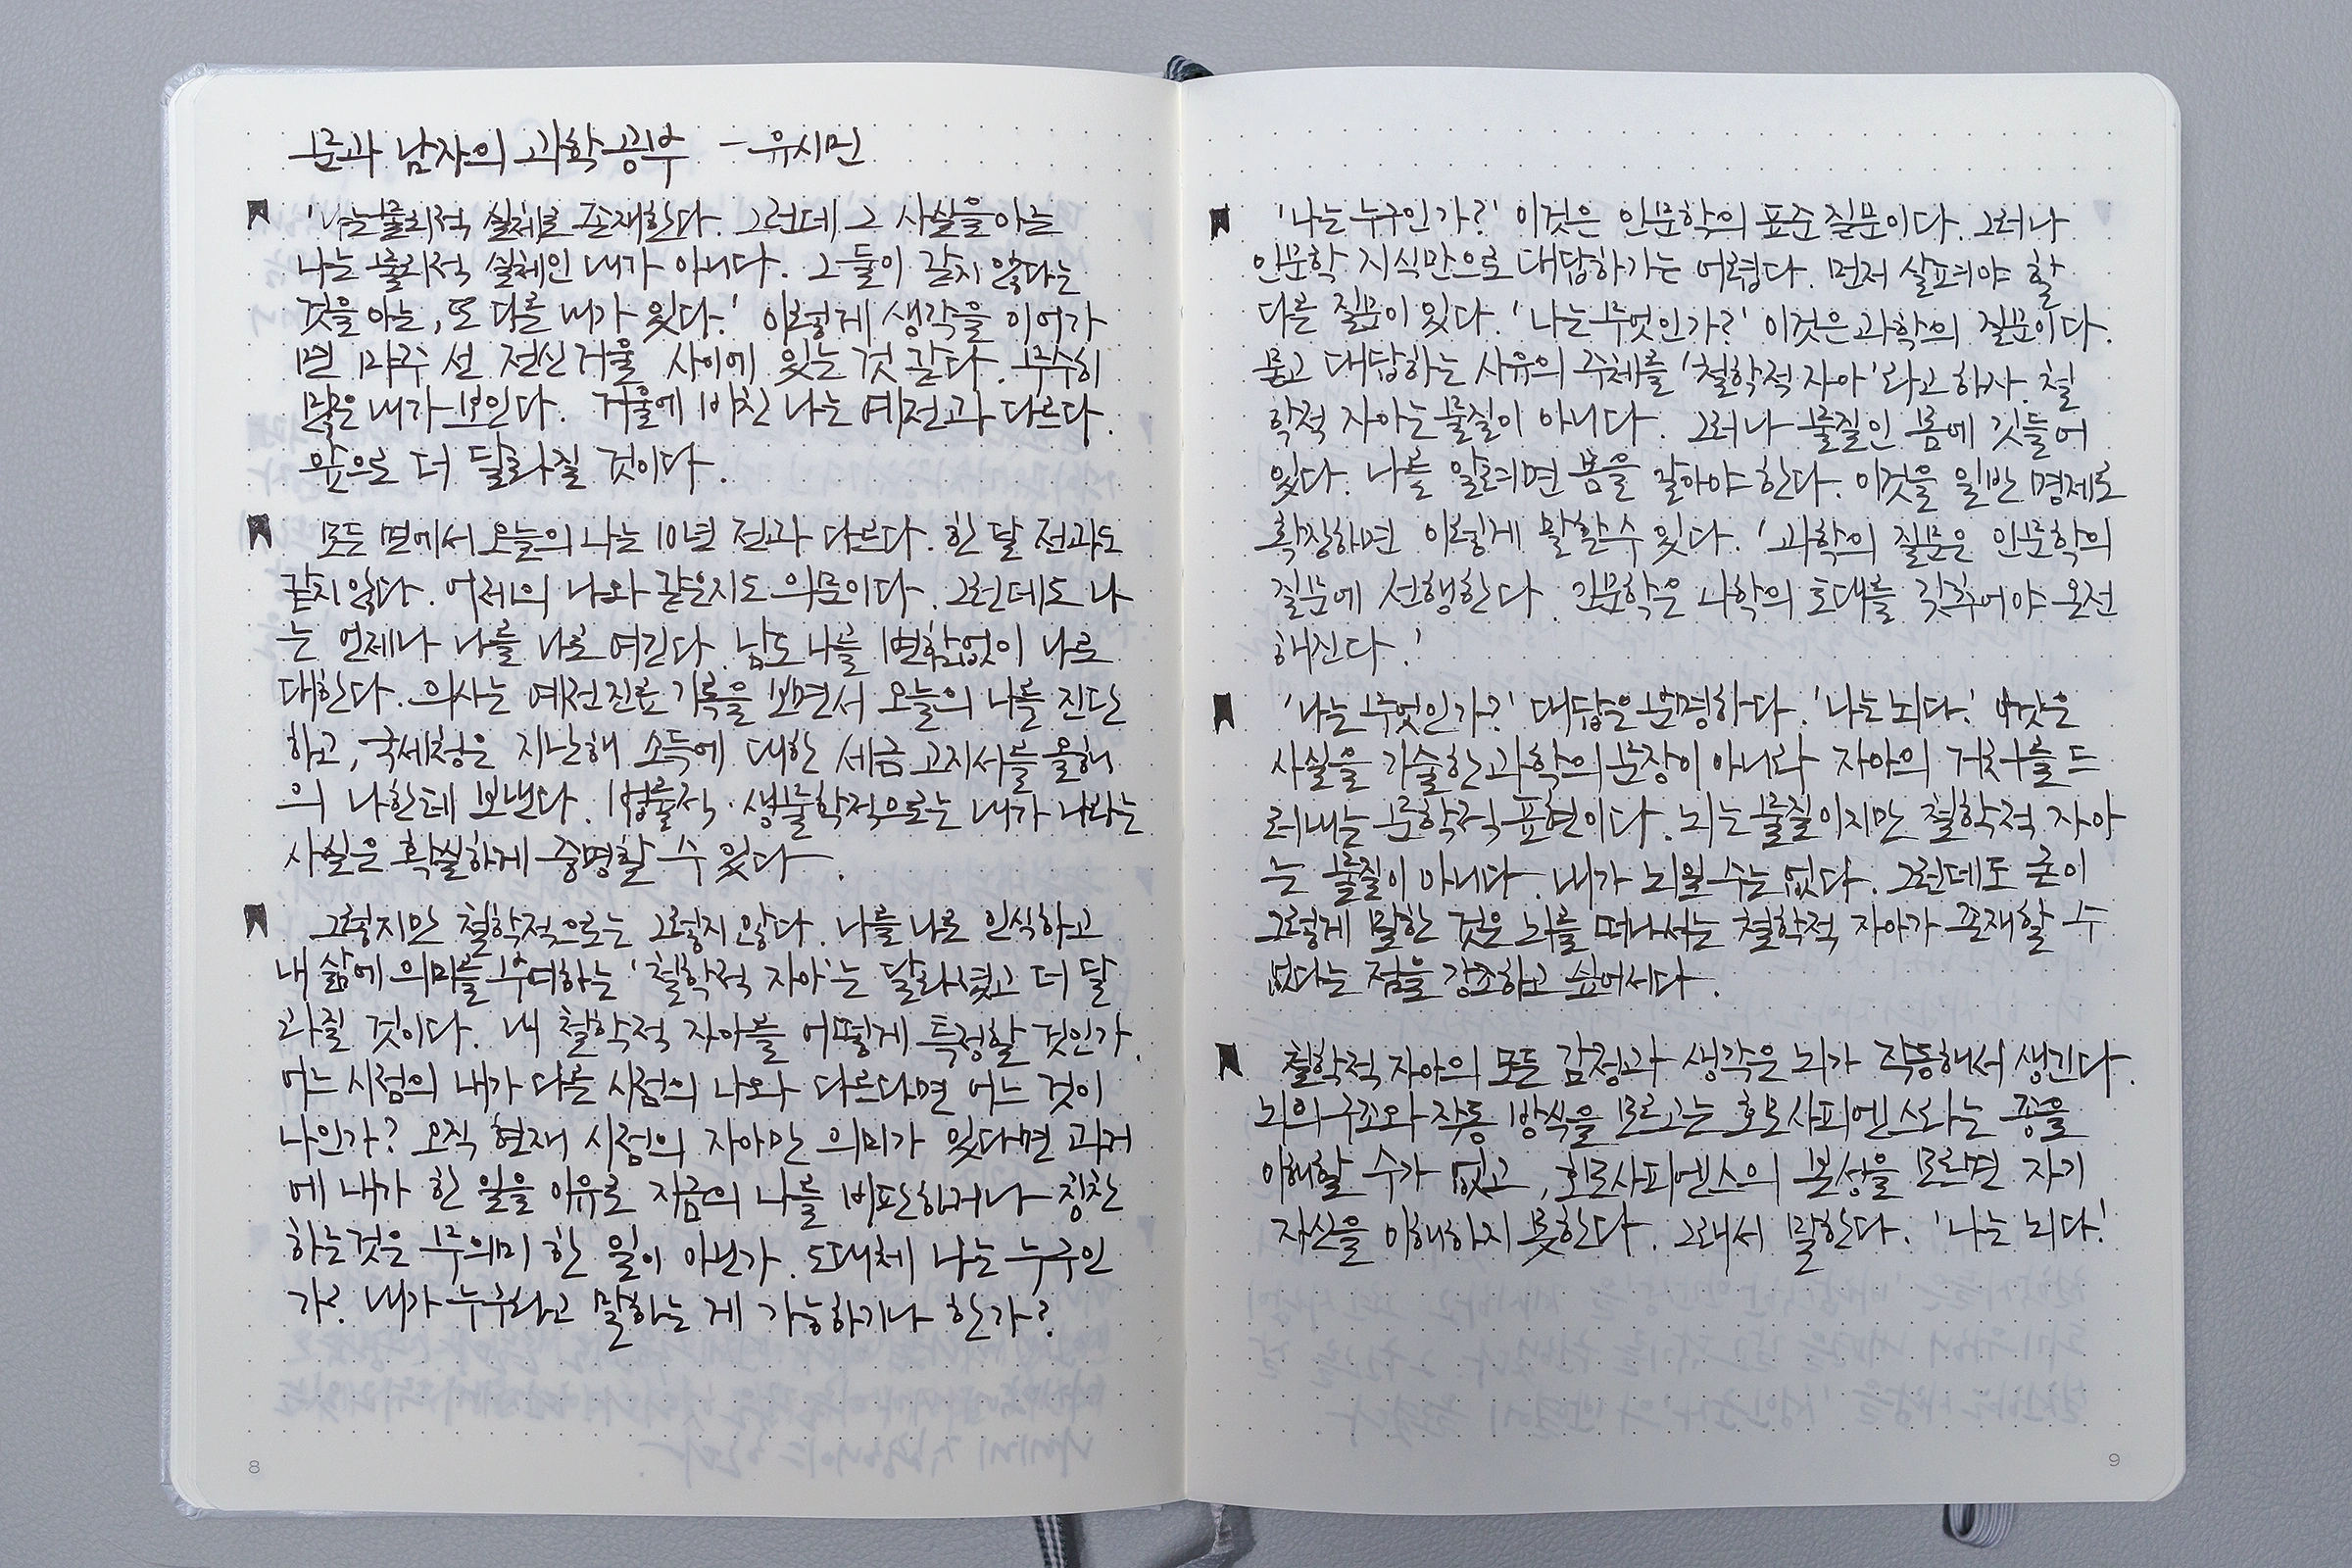 문과 남자의 과학 공부 - 유시민
'나는 물리적 실체로 존재한다. 그런데 그 사실을 아는
나는 물리적 실체인 내가 아니다. 그 둘이 같지 않다는
것을 아는, 또 다른 내가 있다.' 이렇게 생각을 이어가
면 마주 선 전신거울 사이에 있는 것 같다. 무수히
많은 내가 보인다. 거울에 비친 나는 예전과 다르다.
앞으로 더 달라질 것이다.
모든 면에서 오늘의 나는 10년 전과 다르다. 한 달 전과도
같지 않다. 어제의 나와 같은지도 의문이다. 그런데도 나
는 언제나 나를 나로 여긴다. 남도 나를 변함없이 나로
대한다. 의사는 예전 진료 기록을 보면서 오늘의 나를 진단
하고, 국세청은 지난해 소득에 대한 세금 고지서를 올해
의 나한테 보낸다. 법률적·생물학적으로는 내가 나라는
사실은 확실하게 증명할 수 있다.
그렇지만 철학적으로는 그렇지 않다. 나를 나로 인식하고
내 삶에 의미를 부여하는 '철학적 자아'는 달라졌고 더 달
라질 것이다. 내 철학적 자아를 어떻게 특정할 것인가.
어느 시점의 내가 다른 시점의 나와 다르다면 어느 것이
나인가? 오직 현재 시점의 자아만 의미가 있다면 과거
에 내가 한 일을 이유로 지금의 나를 비판하거나 칭찬
하는 것은 무의미 한 일이 아닌가. 도대체 나는 누구인
가? 내가 누구라고 말하는 게 가능하기나 한가?
8
'나는 누구인가?' 이것은 인문학의 표준 질문이다. 그러나
인문학 지식만으로 대답하기는 어렵다. 먼저 살펴야 할
다른 질문이 있다. '나는 무엇인가?' 이것은 과학의 질문이다.
묻고 대답하는 사유의 주체를 '철학적 자아'라고 하자. 철
학적 자아는 물질이 아니다. 그러나 물질인 몸에 깃들어
있다. 나를 알려면 몸을 알아야 한다. 이것을 일반 명제로
확장하면 이렇게 말할 수 있다. '과학의 질문은 인문학의
질문에 선행한다. 인문학은 과학의 토대를 갖추어야 온전
해진다.'
'나는 무엇인가?' 대답은 분명하다. '나는 뇌다.' 이것은
사실을 기술한 과학의 문장이 아니라 자아의 거처를 드
러내는 문학적 표현이다. 뇌는 물질이지만 철학적 자아
는 물질이 아니다. 내가 뇌일 수는 없다. 그런데도 굳이
그렇게 말한 것은 뇌를 떠나서는 철학적 자아가 존재할 수
없다는 점을 강조하고 싶어서다.
철학적 자아의 모든 감정과 생각은 뇌가 작동해서 생긴다.
뇌의 구조와 작동 방식을 모르고는 호모사피엔스라는 종을
이해할 수가 없고, 호모사피엔스의 본성을 모르면 자기
자신을 이해하지 못한다. 그래서 말한다. '나는 뇌다.'
9